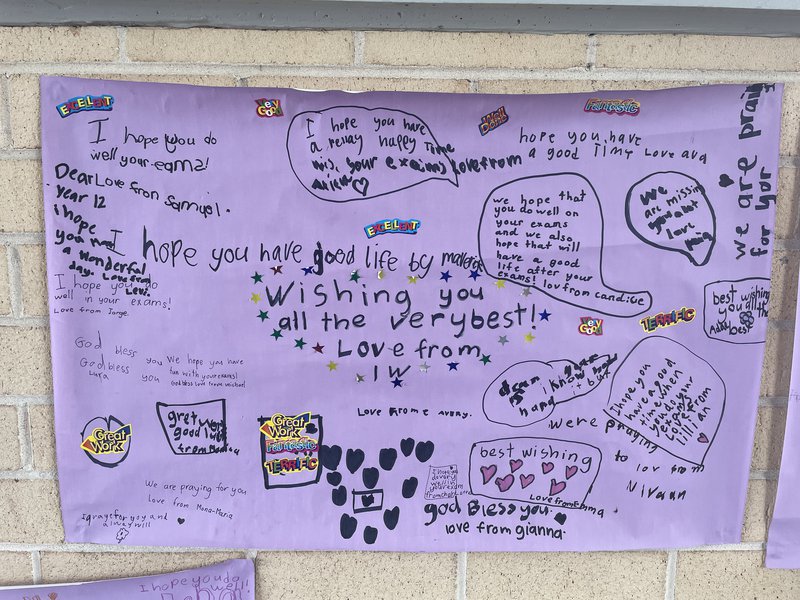 EXCELLENT
Very Good
Well Done
Fantastic
I hope you do
well your eam2!
Dear Love from Samuel.
year 12
i hope
you
a wonderful
day. Love from
Levi.
I hope you have
a really happy Time
your exams Love from
hope you have
a good Time Love ava
we are
for you
we hope that
you do well on
your exams
and we also
hope that will
have a good
life after your
exams! lov from candice
We
are missing
you alot
love
EXCELLENT
I hope you have good life by
Wishing you
all the very best!
Love from
1W
I hope you do
well in your exams!
Love from Jorge.
best wishing
you all the
best
Very Good
TERRIFIC
God bless you
God bless you
Luka
We hope you have
fun with your exams!
God bless love from michael
I know
hard it but
I hope you
have a good
time when
you do your
Love from
lillian
Love frome avery.
were praying
to lov from
Nivaan
Great Work
gret work
good
from
Great Work
Fantastic
TERRIFIC
best wishing
Love from Emma
I hope you
We are praying for you
Love from Mona-Maria
God Bless you.
love from gianna.
I pray for you and
alwey will
I hope you do
well!